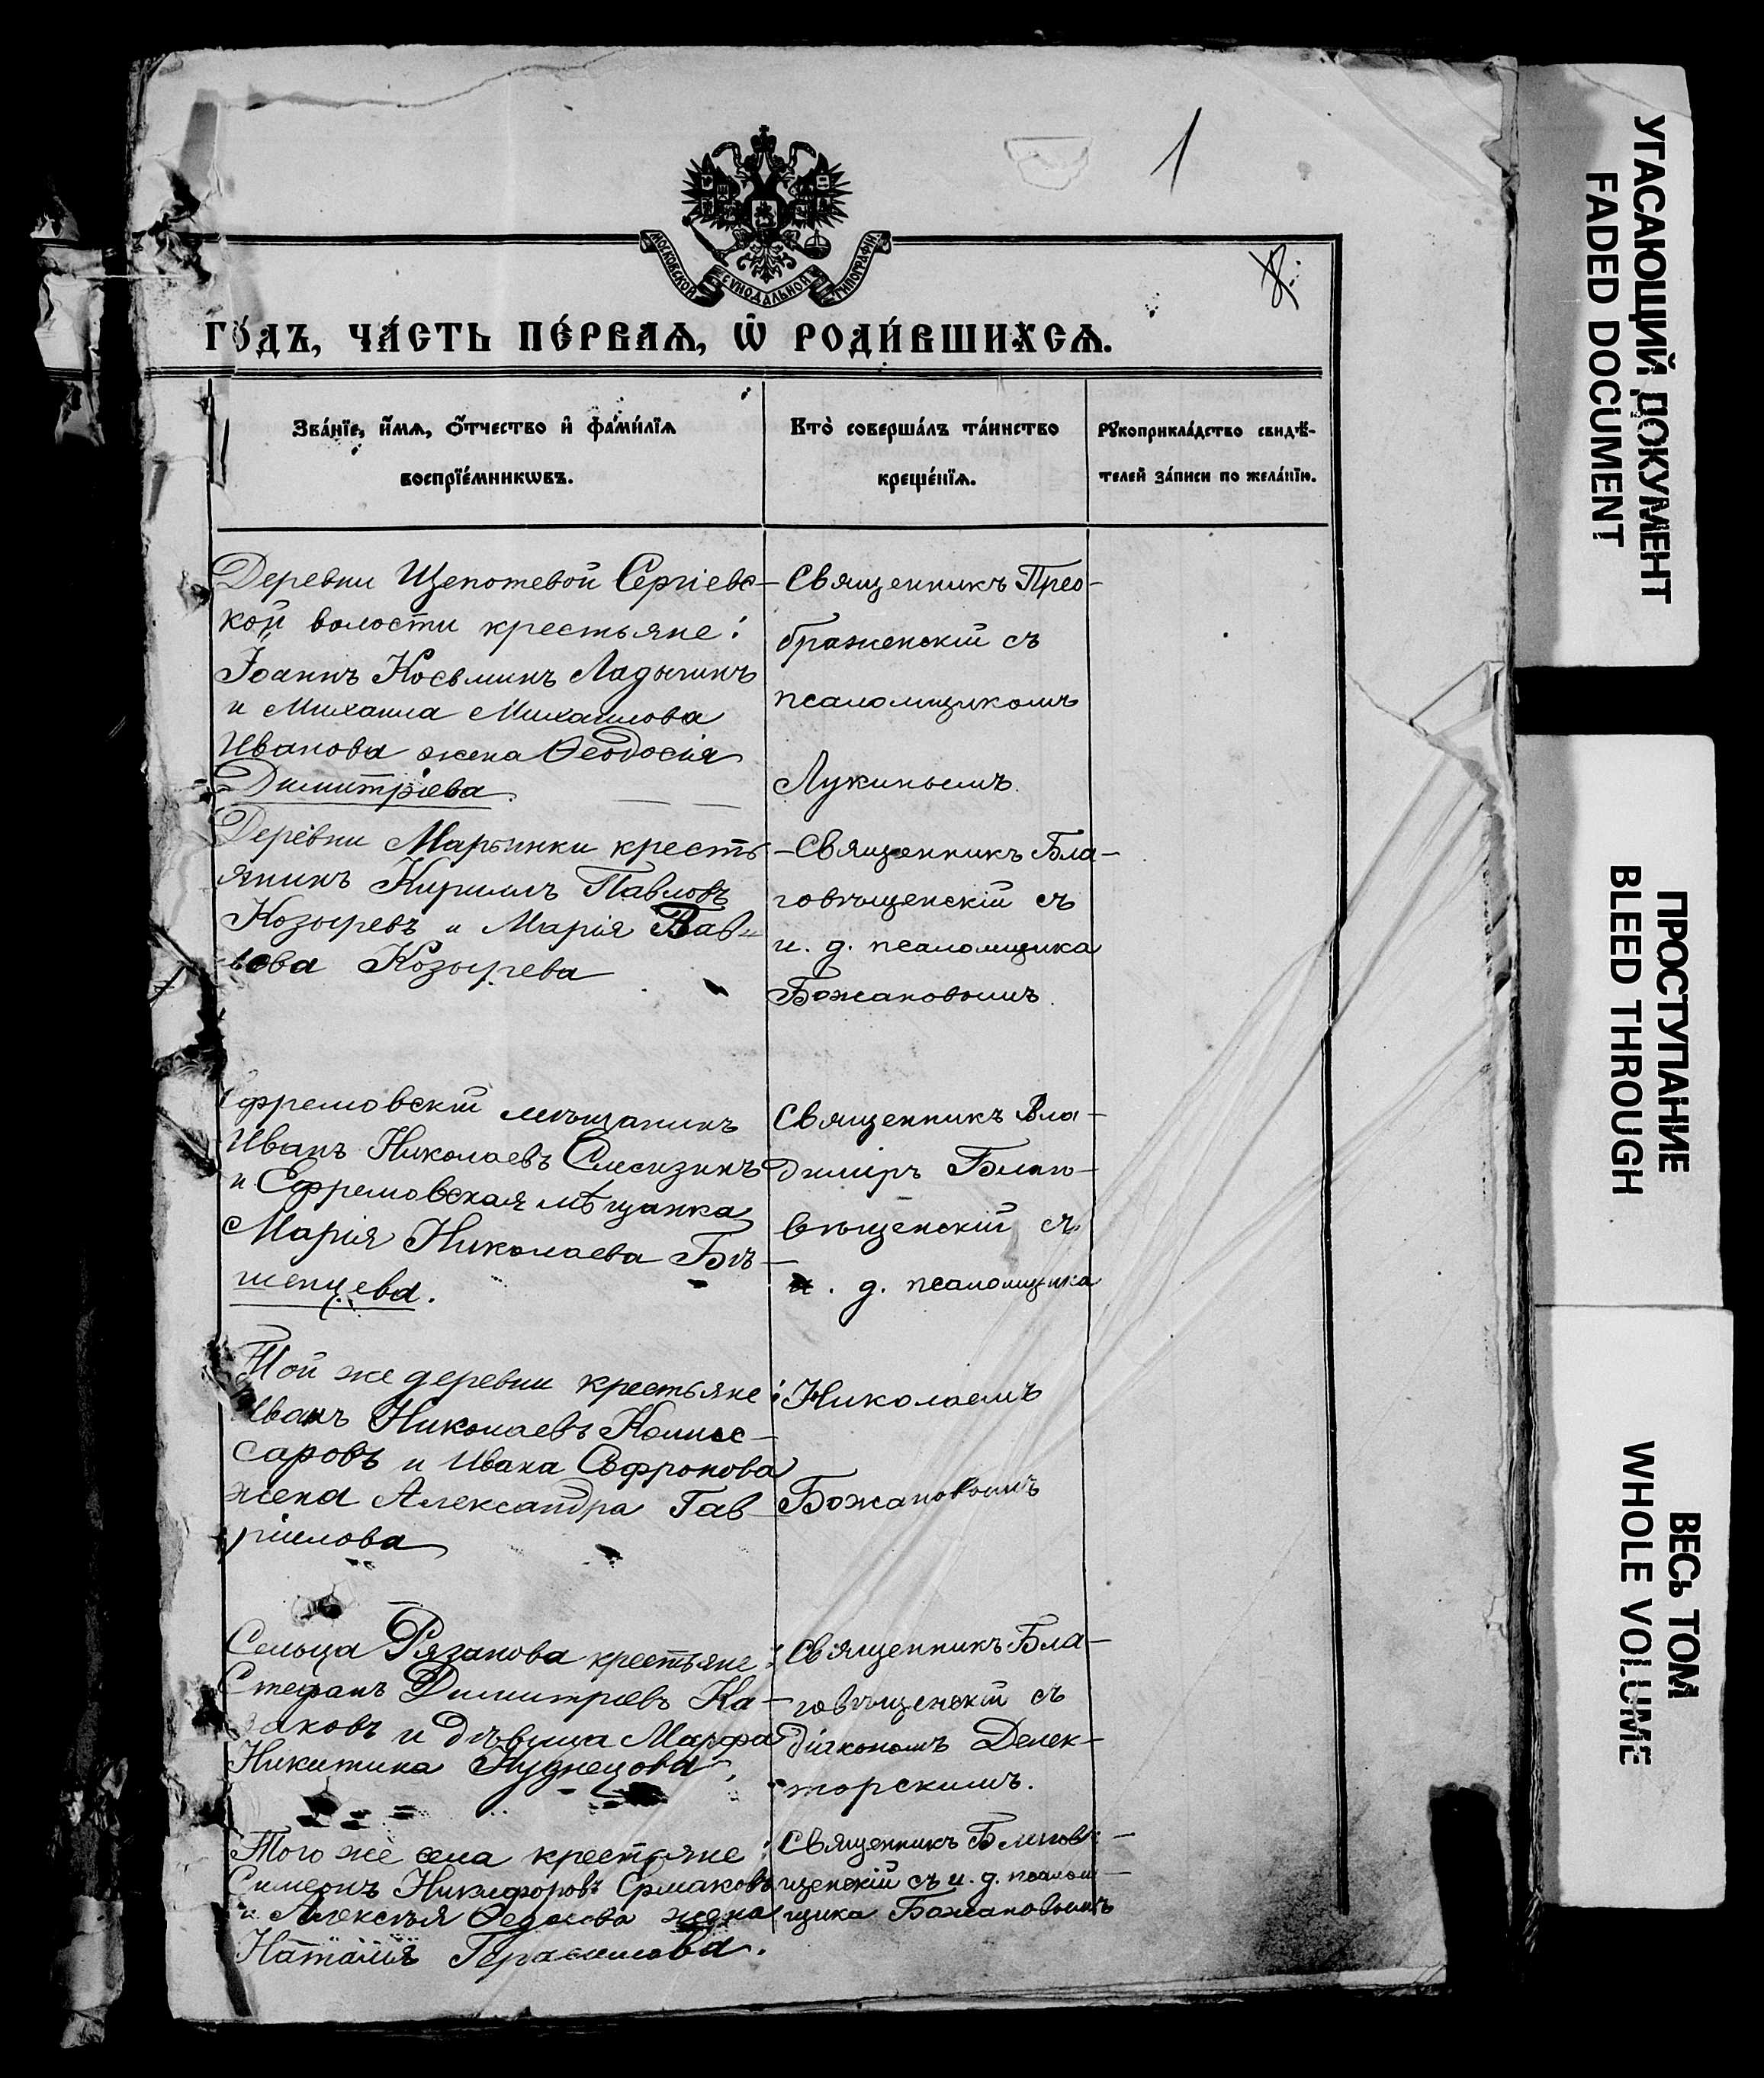 1
МОСКОВСКОЙ СѴНОДАЛЬНОЙ ТИПОГРАФІИ
ГО́ДЪ, ЧА́СТЬ ПЕ́РВАѦ, Ѡ҆ РОДИ́ВШИХСѦ.
Зва́нїе, и҆́мѧ, ѻ҆́тчество и҆ фами́лїѧ
воспрїе́мникѡвъ.
Кто̀ соверша́лъ та́инство
креще́нїѧ.
Рꙋкоприкла́дство свидѣ́-
телей за́писи по жела́нїю.
Деревни Щепотевой Сергіевс-
кой волости крестьяне:
Іоаннъ Косьминъ Ладыгинъ
и Михаила Михаилова
Иванова жена Ѳеодосія
Димитріева.
Священникъ Прео-
браженскій съ
псаломщикомъ
Лукинымъ.
Деревни Мартинки кресть
янинъ Кириллъ Павловъ
Козыревъ и Марія Пав-
лова Козырева
-Священникъ Бла-
говѣщенскій съ
и. д. псаломщика
Божановымъ.
Ефремовскій мѣщанинъ
Иванъ Николаевъ
и Ефремовская мѣщанка
Марія Николаева Бѣ-
шенцева.
Священникъ Вла-
диміръ Благо-
вѣщенскій съ
и. д. псаломщика
Той же деревни крестьяне:
Иванъ Николаевъ Коммис-
саровъ и Ивана Софронова
жена Александра Гав-
ріилова
Николаемъ
Божановымъ
Сельца Рязанова крестьяне:
Стефанъ Димитріевъ Ка-
заковъ и дѣвица Марфа
Никитина Кузнецова
Священникъ Бла-
говѣщенскій съ
діакономъ Делек-
торскимъ.
Того же села крестьяне:
Симеонъ Никифоровъ Ермаковъ
и Алексѣя Ѳедосова жена
Наталія Герасимова.
Священникъ Благовѣ-
щенскій съ и. д. псалом-
щика Божановымъ
УГАСАЮЩИЙ ДОКУМЕНТ
FADED DOCUMENT
ПРОСТУПАНИЕ
BLEED THROUGH
ВЕСЬ ТОМ
WHOLE VOLUME